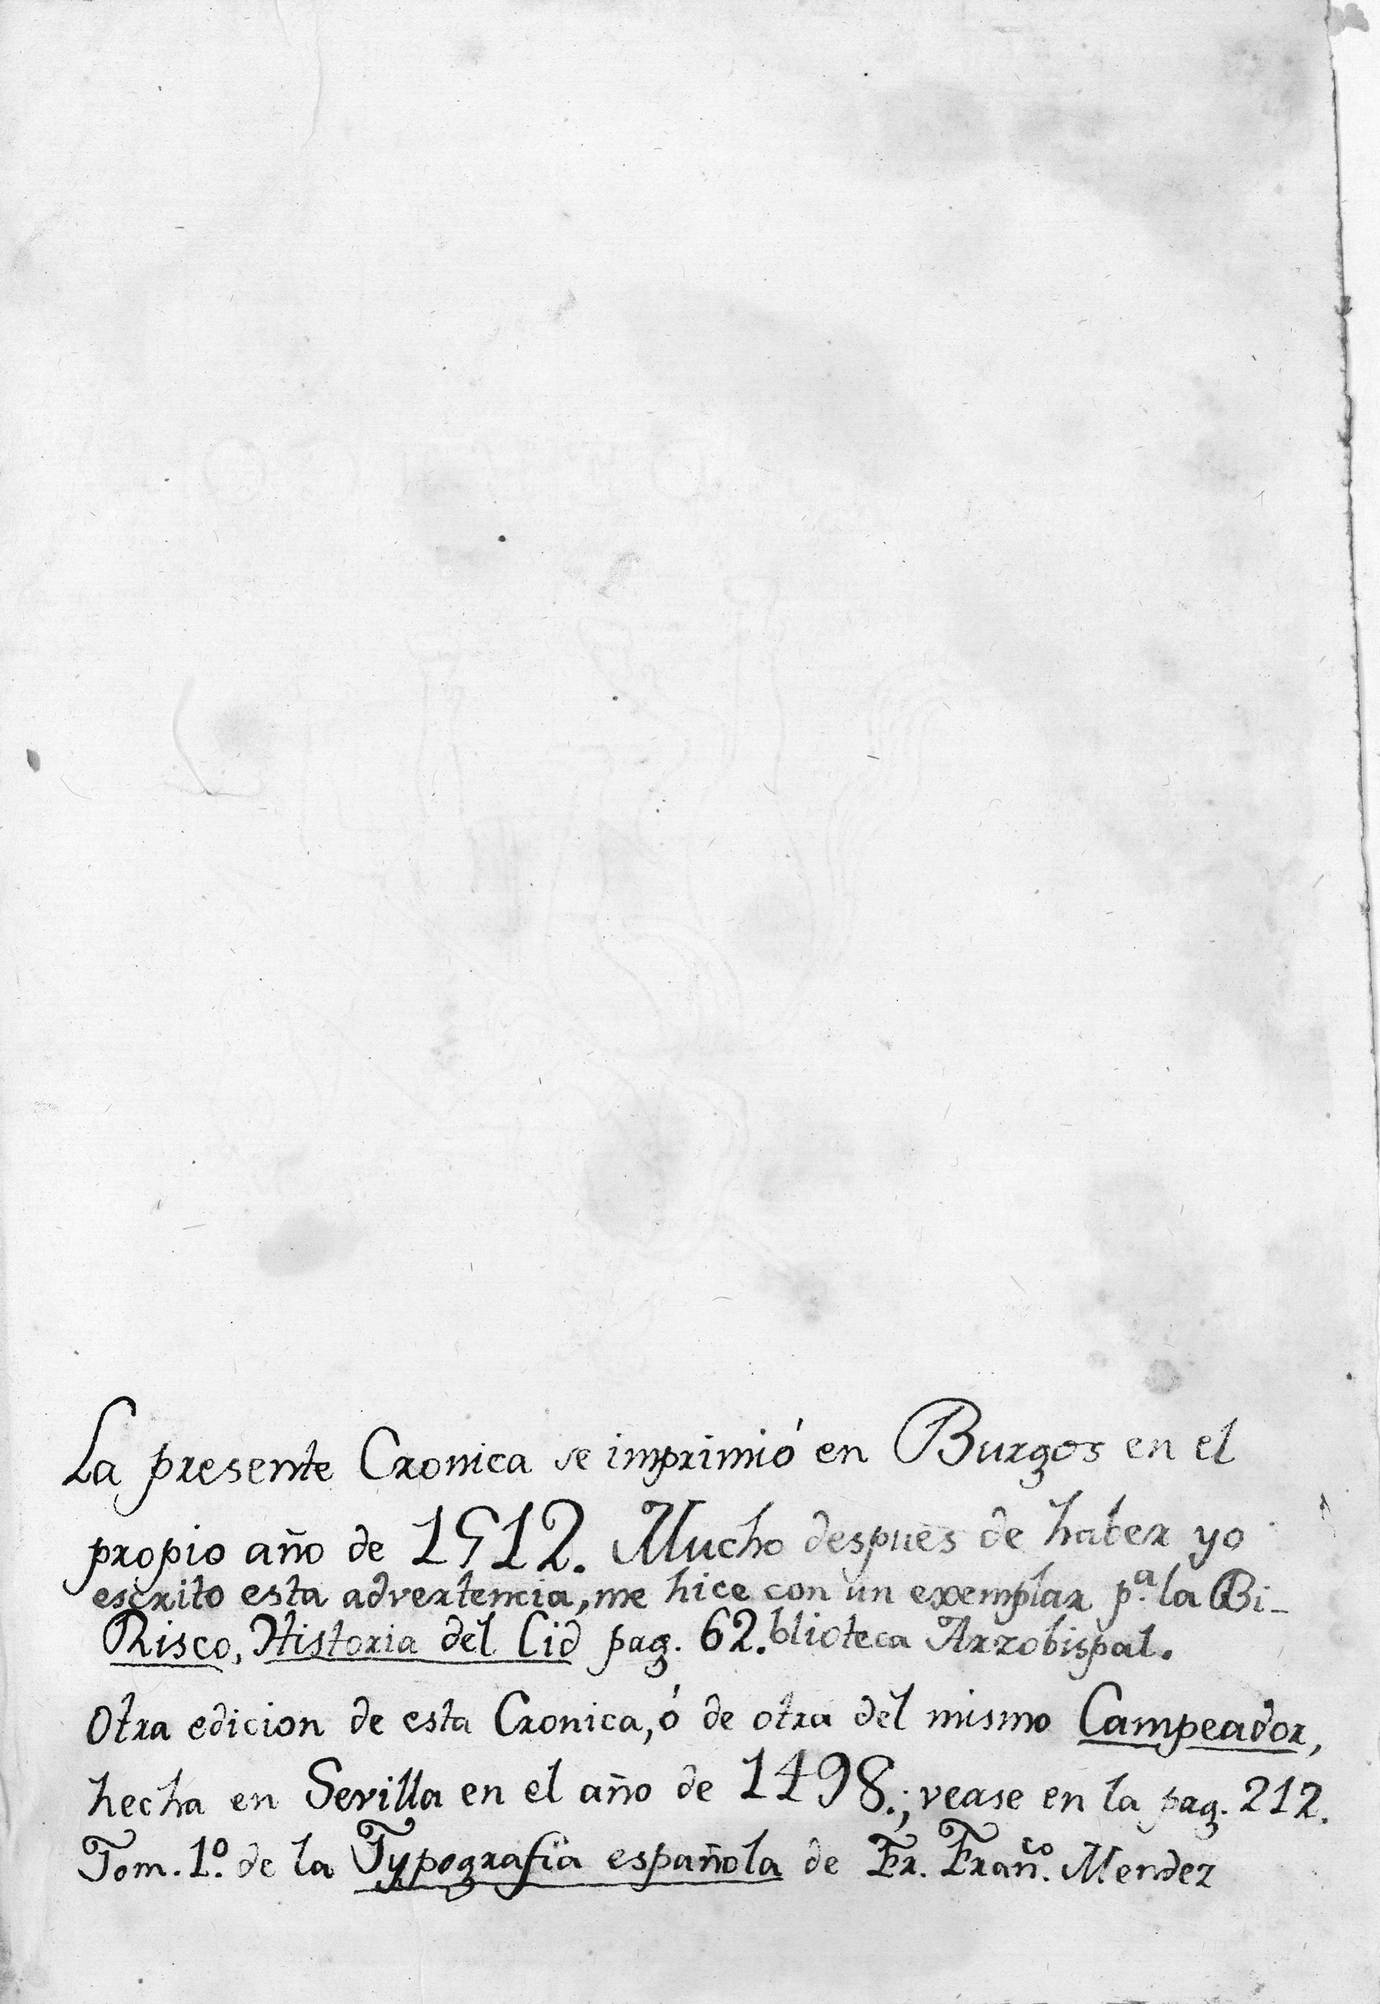 La presente Cronica se imprimió en Burgos en el
propio año de 1512. Mucho despues de haber yo
escrito esta advertencia, me hice con un exemplar p.ª la Bi-
Risco, Historia del Cid pag. 62. blioteca Arzobispal.
Otra edicion de esta Cronica, ó de otra del mismo Campeador,
hecha en Sevilla en el año de 1498.; vease en la pag. 212.
Tom. 1.º de la Typografia española de Fr. Fran.co Mendez